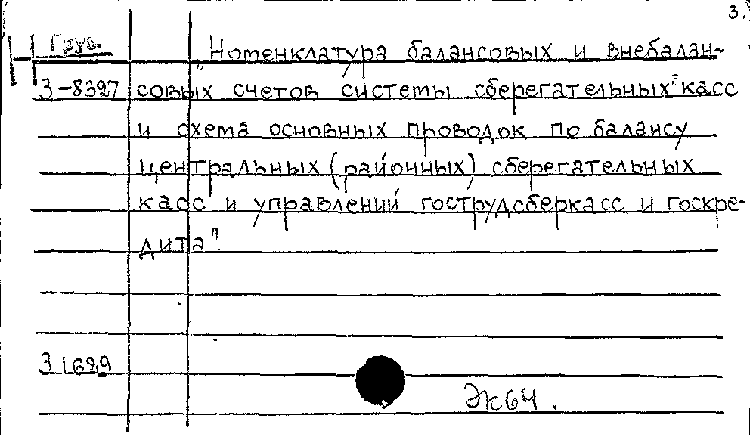 3.
Н Груз. „Номенклатура балансовых и внебалан-
3-8327 совых счетов системы сберегательных касс
и схема основных проводок по балансу
центральных (районных) сберегательных
касс и управлений гострудсберкасс и госкре-
дита".
31629
Эк64.